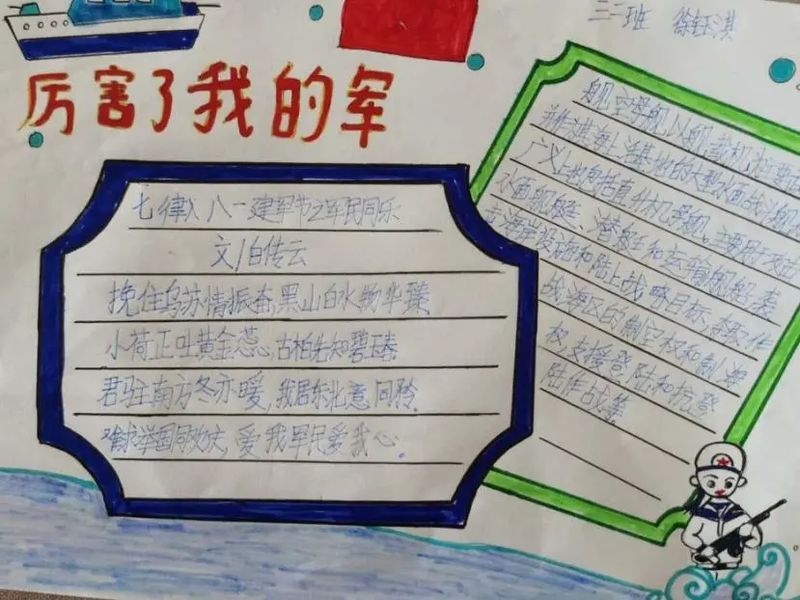 三二班 徐钰淇
厉害了我的军
七律八一建军节之军民同乐
文/白传云
挽住乌苏情振奋,黑山白水物华臻
小荷正吐黄金蕊,古柏先知碧玉春
君驻南方冬亦暖,我居东北意同矜.
难求举国同欢庆,爱我军民爱我心。
舰空母舰,以舰载机
并作海上活基地的大型水面战斗舰
广义上
水面舰艇、潜艇和运输舰船,袭
击海岸设施和陆上战略目标,夺取作
战海区的制空权和制海
权,支援登陆和抗登
陆作战等